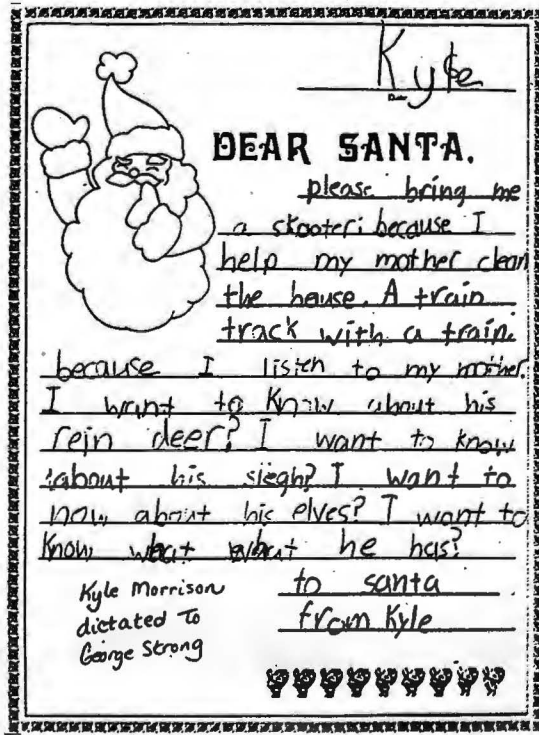 Kyle
Date
DEAR SANTA,
please bring me
a skooter because I
help my mother clean
the hause. A train
track with a train.
because I listen to my mother.
I want to Know about his
rein deer? I want to know
about his slegh? I want to
now about his elves? I want to
Know what what he has?
to santa
from Kyle
Kyle Morrison
dictated To
George Strong